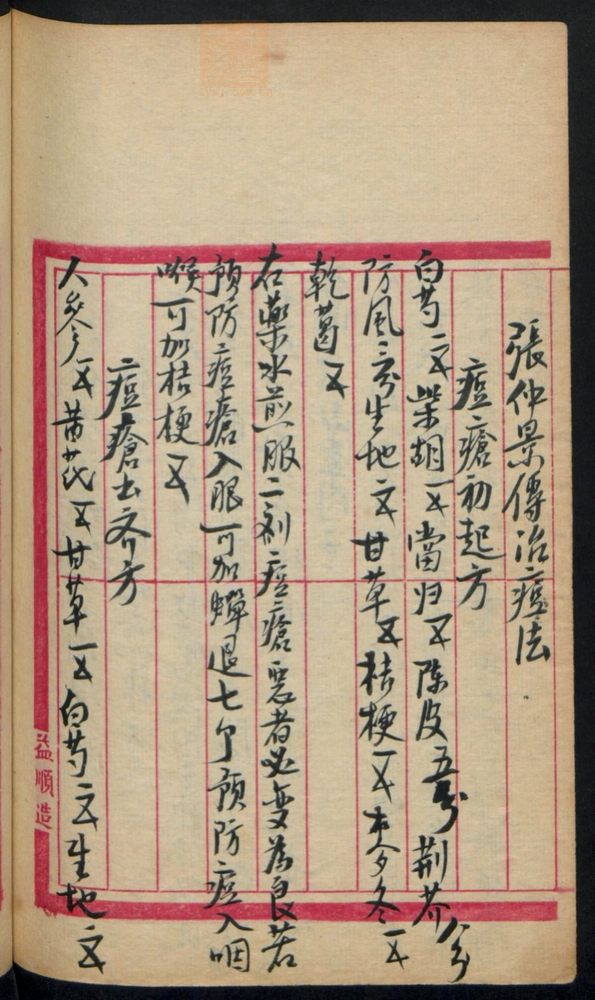 張仲景傳治痘法
痘瘡初起方
白芍二钱柴胡一钱當归钱陳皮五分荆芥八分
防風三分生地二钱甘草钱桔梗一钱麦冬一钱
乾葛一钱
右藥水煎服二剂痘瘡恶者必变為良若
预防痘瘡入眼可加蟬退七个预防痘入咽
喉可加桔梗一钱
痘瘡出齐方
人参一钱黄芪一钱甘草一钱白芍二钱生地二钱
益順造